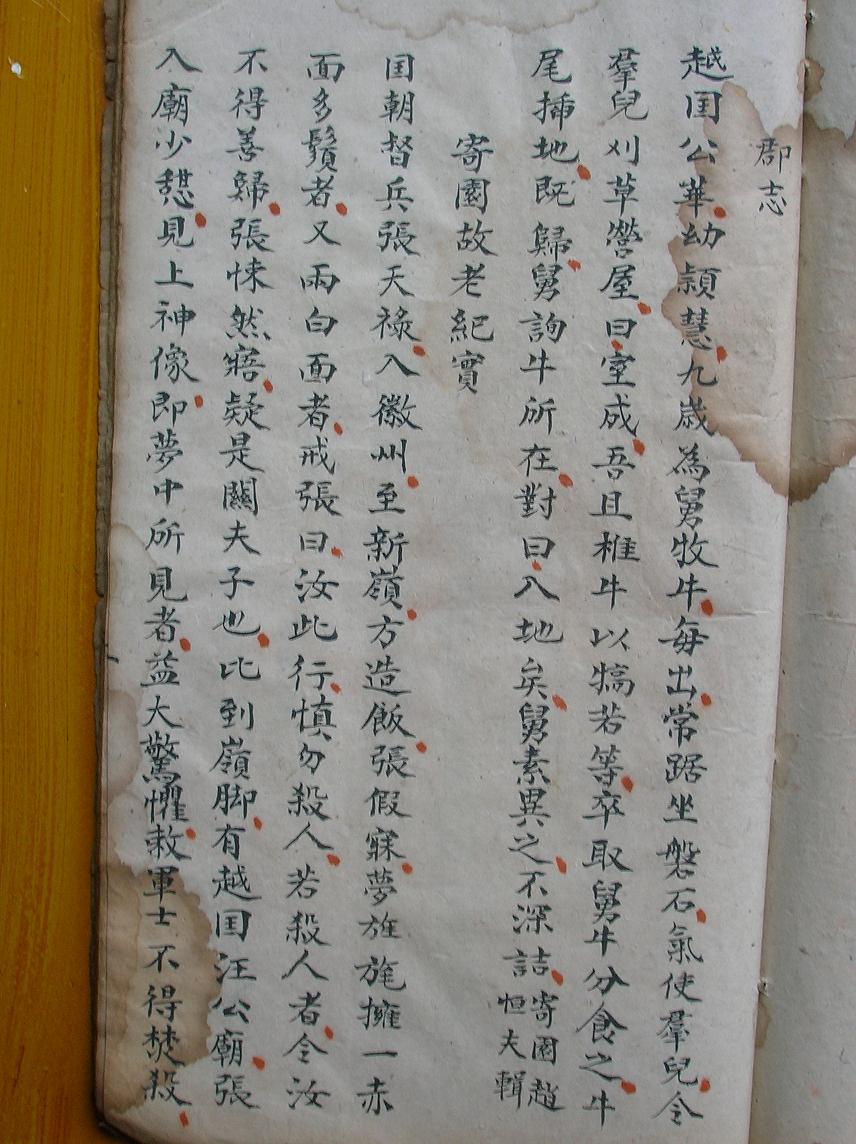 郡志
越囯公華幼頴慧九歳為舅牧牛每出常踞坐磐石氣使羣兒令
羣兒刈草營屋曰室成吾且椎牛以犒若等卒取舅牛分食之牛
尾插地既歸舅詢牛所在對曰入地矣舅素異之不深詰寄園趙恒夫輯
寄園故老紀實
囯朝督兵張天祿入徽州至新嶺方造飯張假寐夢旌旄擁一赤
面多鬚者又兩白面者戒張曰汝此行慎勿殺人若殺人者令汝
不得善歸張悚然寤疑是關夫子也比到嶺脚有越囯汪公廟張
入廟少憇見上神像即夢中所見者益大驚懼敕軍士不得焚殺